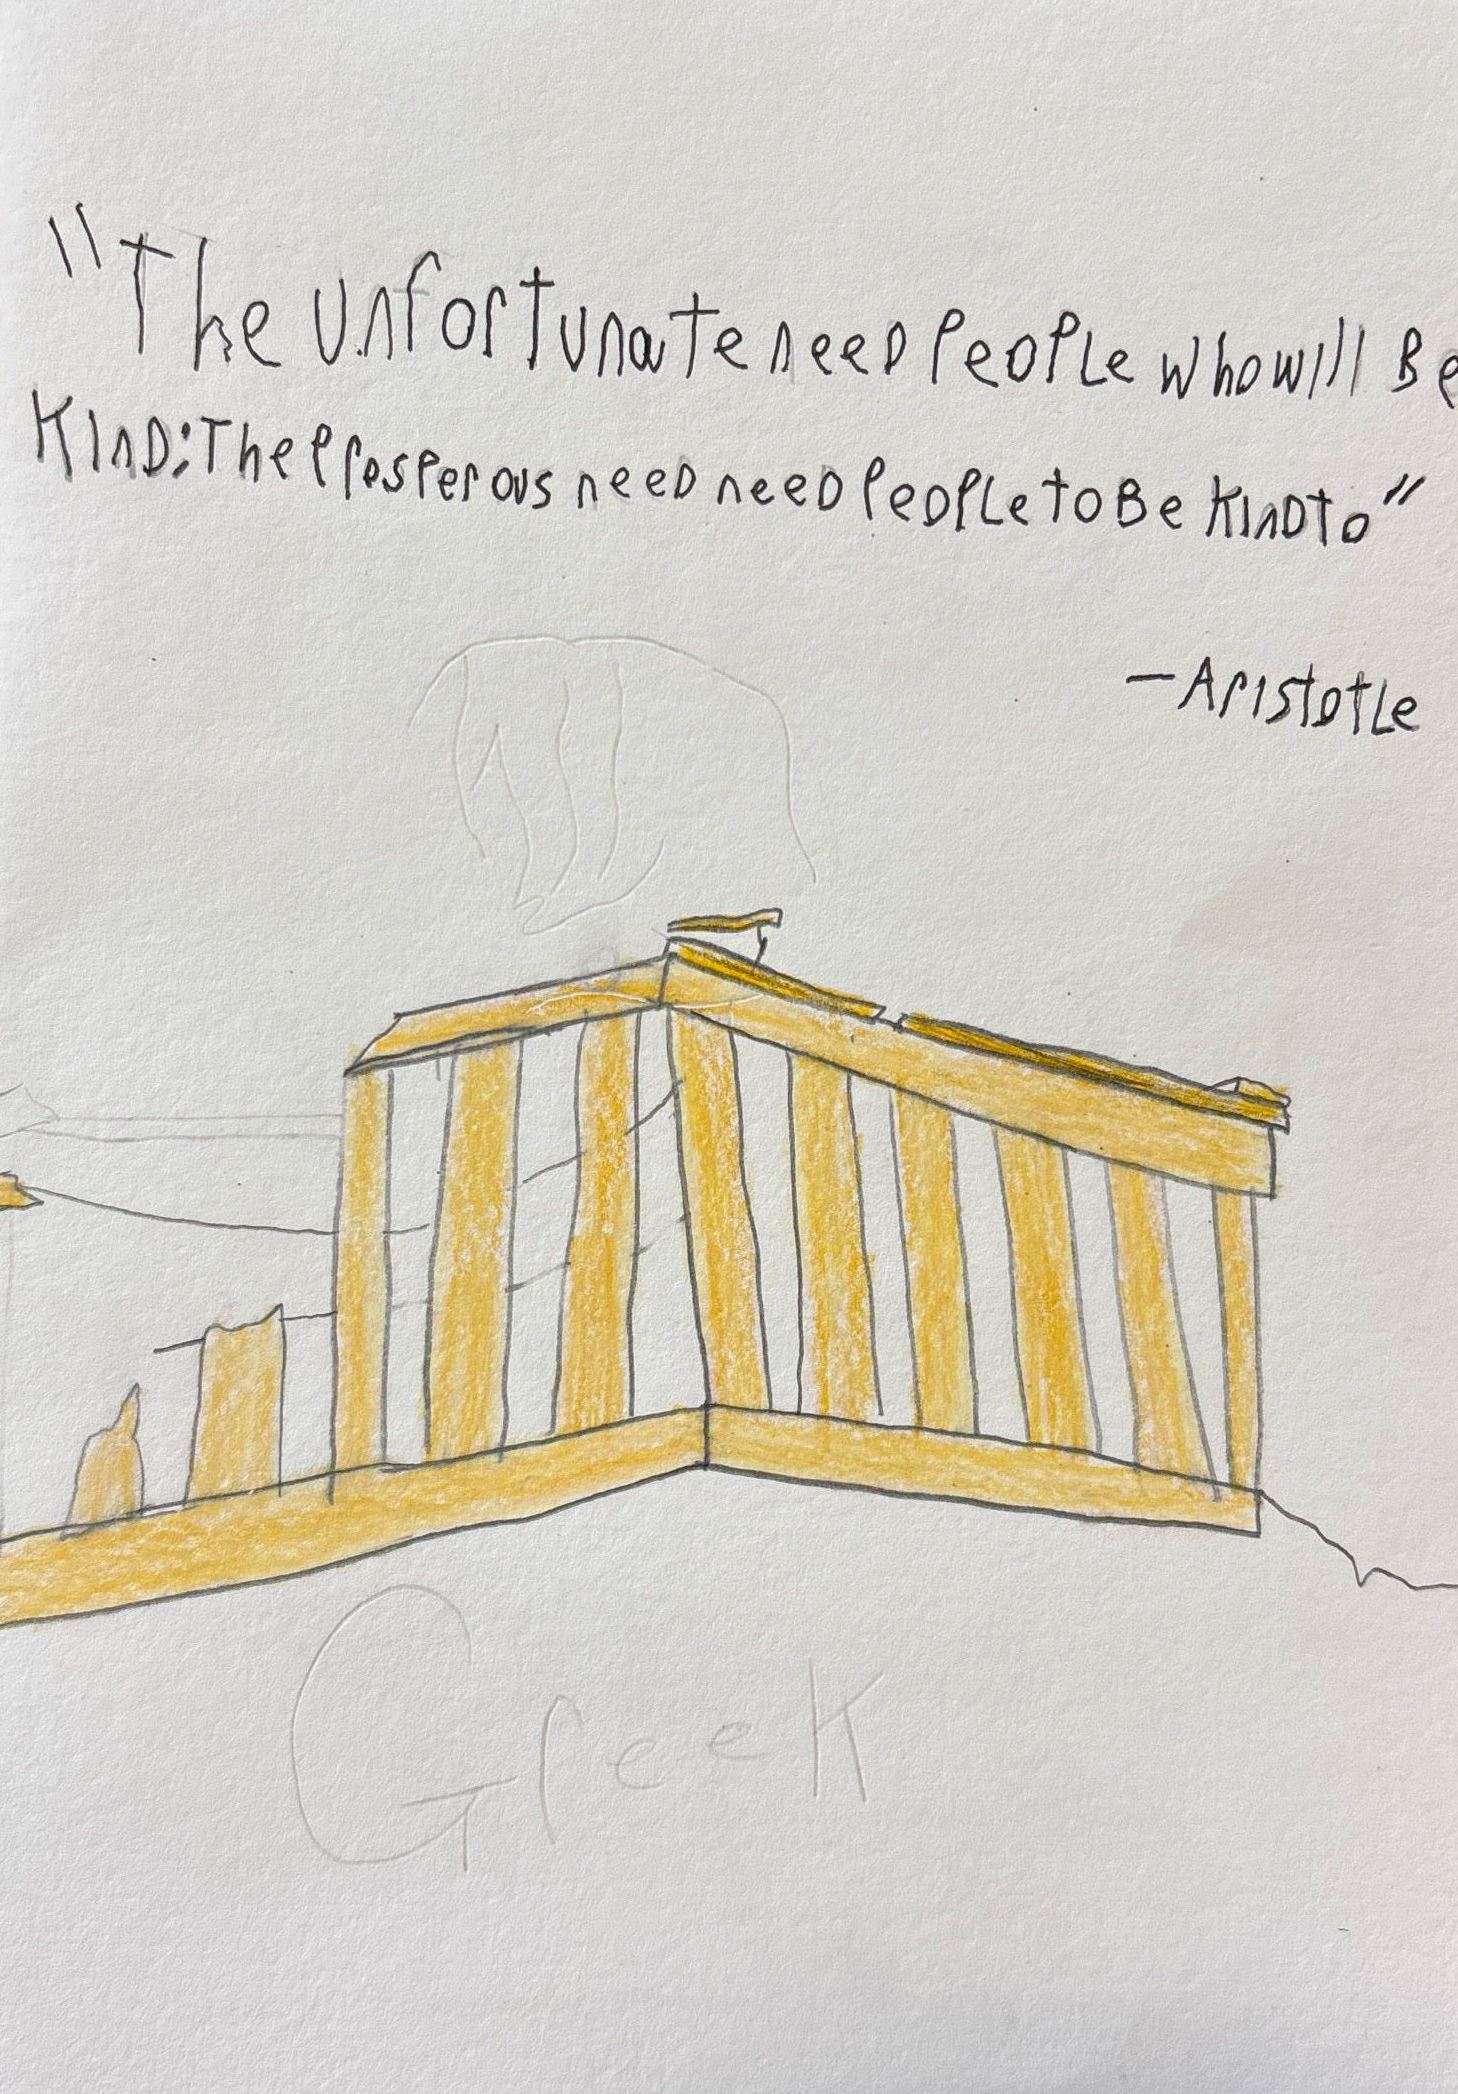 "The unfortunate need people who will Be
KinD: The Prosperous need need people to Be Kind to"
- Aristotle
Greek